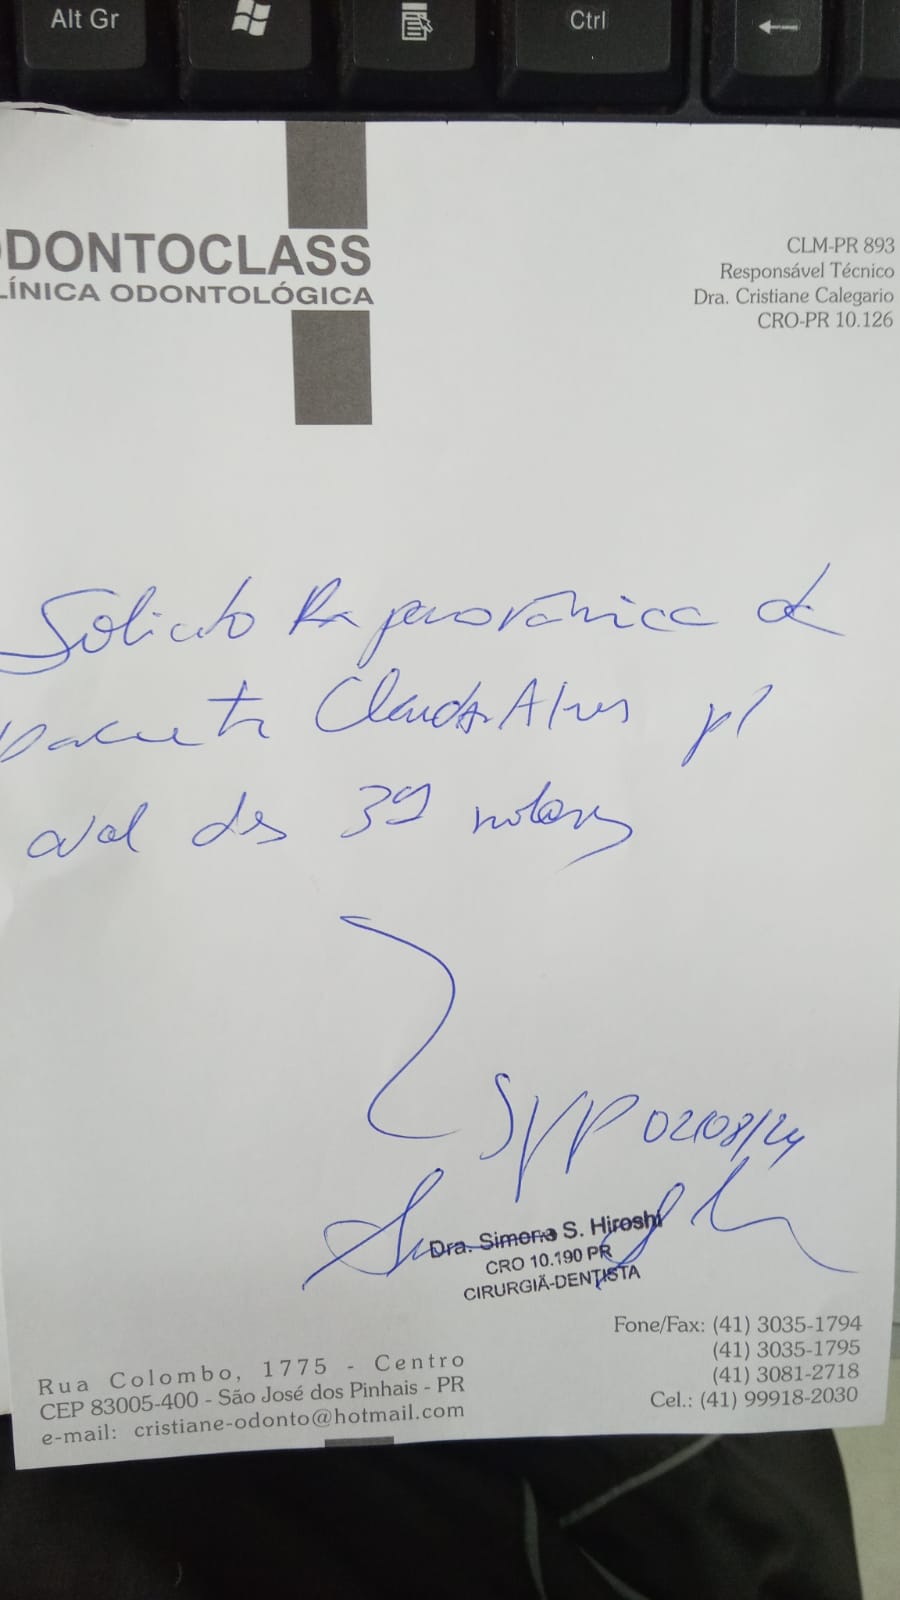 Alt Gr
Ctrl
ODONTOCLASS
CLÍNICA ODONTOLÓGICA
CLM-PR 893
Responsável Técnico
Dra. Cristiane Calegario
CRO-PR 10.126
Solicito Rx panorâmica de
paciente Claudia Alves p/
aval dos 3os molares
SJP 02/08/24
Dra. Simone S. Hiroshi
CRO 10.190 PR
CIRURGIÃ-DENTISTA
Rua Colombo, 1775 - Centro
CEP 83005-400 - São José dos Pinhais - PR
e-mail: cristiane-odonto@hotmail.com
Fone/Fax: (41) 3035-1794
(41) 3035-1795
(41) 3081-2718
Cel.: (41) 99918-2030